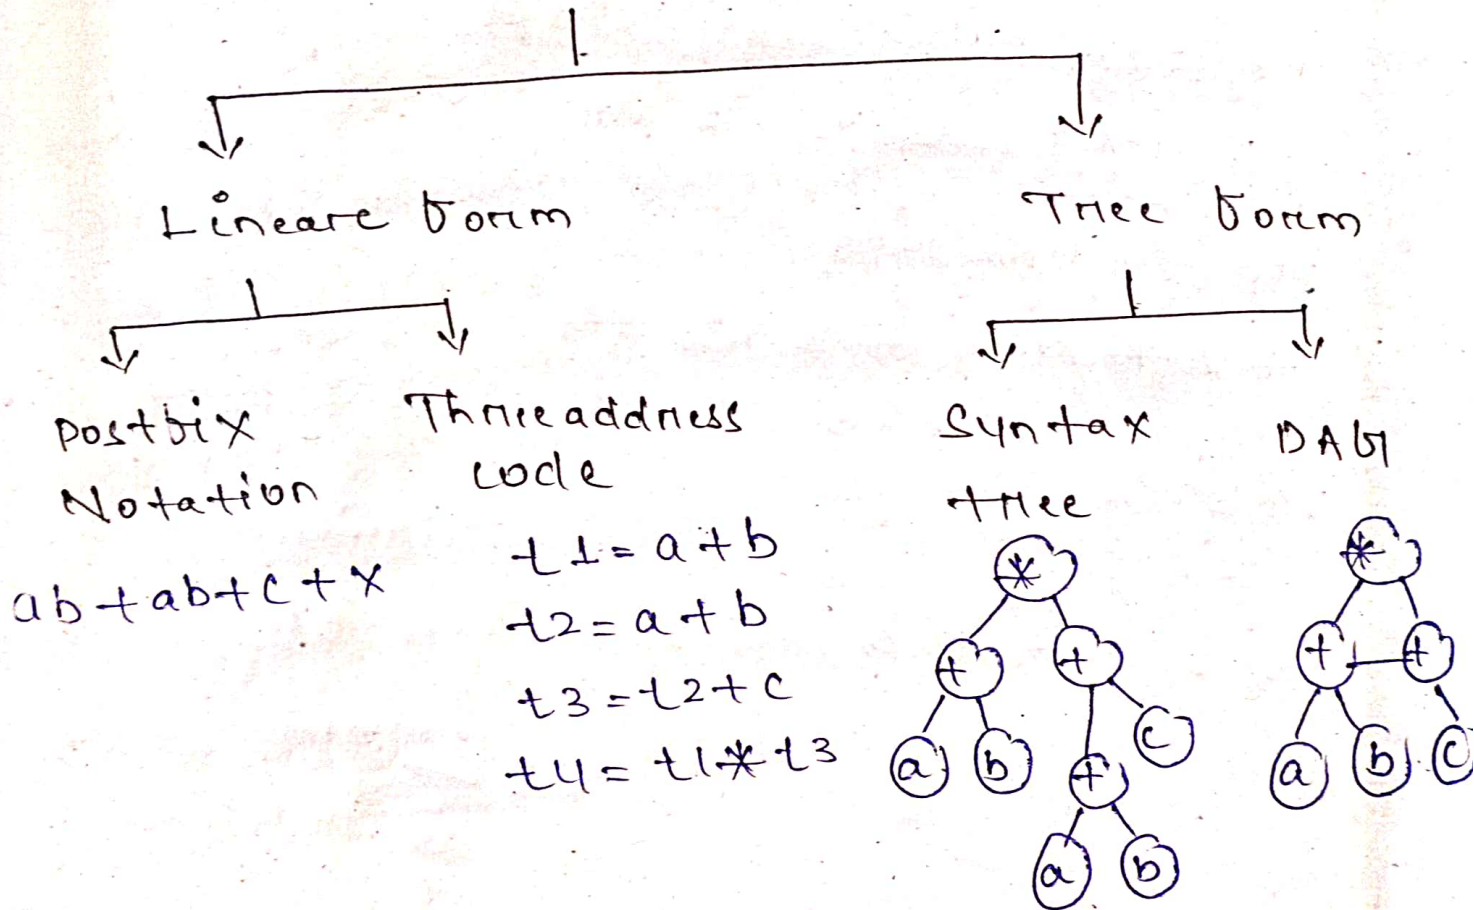 Lineare form
Tree form
Postfix
Notation
ab+ab+c+x
Three address
code
t1=a+b
t2=a+b
t3=t2+c
t4=t1*t3
Syntax
tree
*
+ +
a b + c
a b
DAG
*
+ +
a b c